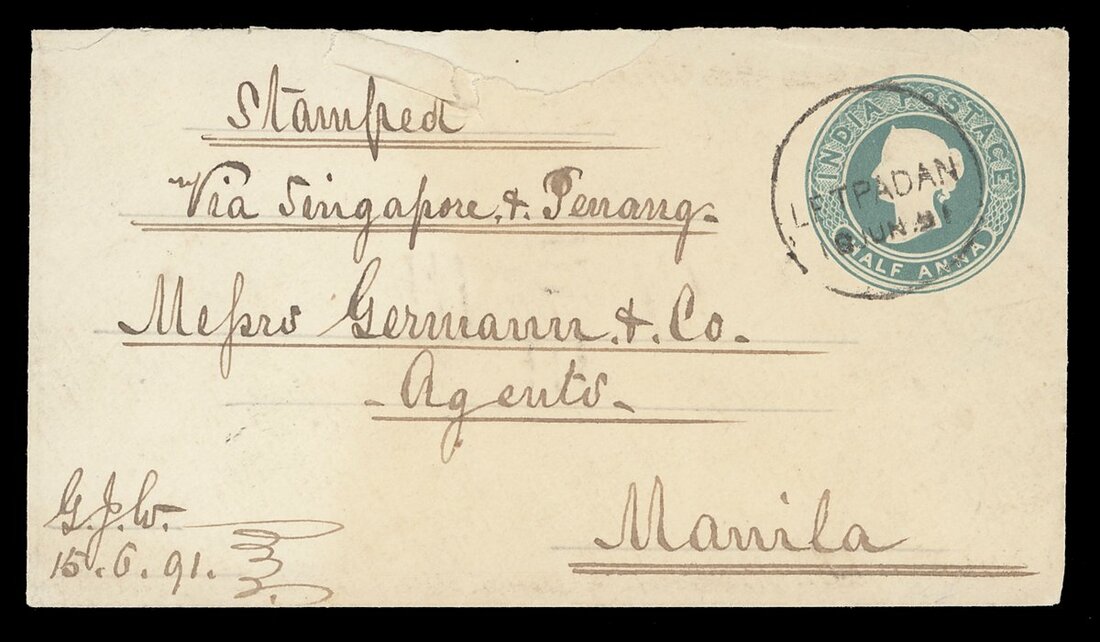 Stamped
Via Singapore & Penang
Messrs Germann & Co.
Agents
Manila
G.J.W.
15.6.91.
INDIA POSTAGE
HALF ANNA
LETPADAN
JUN 91